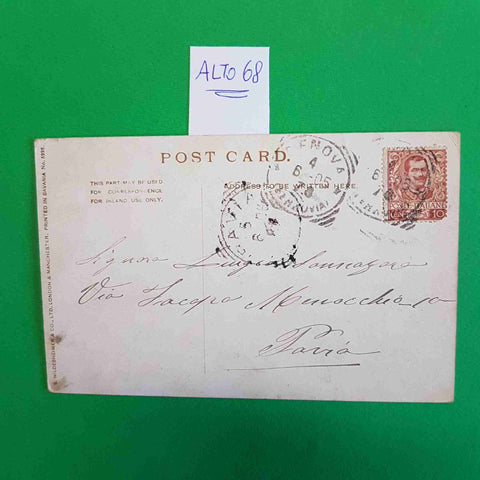 ALTO 68
POST CARD.
THIS PART MAY BE USED
FOR CORRESPONDENCE
FOR INLAND USE ONLY.
ADDRESS TO BE WRITTEN HERE.
GENOVA
4
(FERROVIA)
POSTE ITALIANE
CENT. 10
PAVIA
Signora Luigia
Via Jacopo Menocchio 10
Pavia
HILDESHEIMER & CO., LTD. LONDON & MANCHESTER. PRINTED IN BAVARIA No.